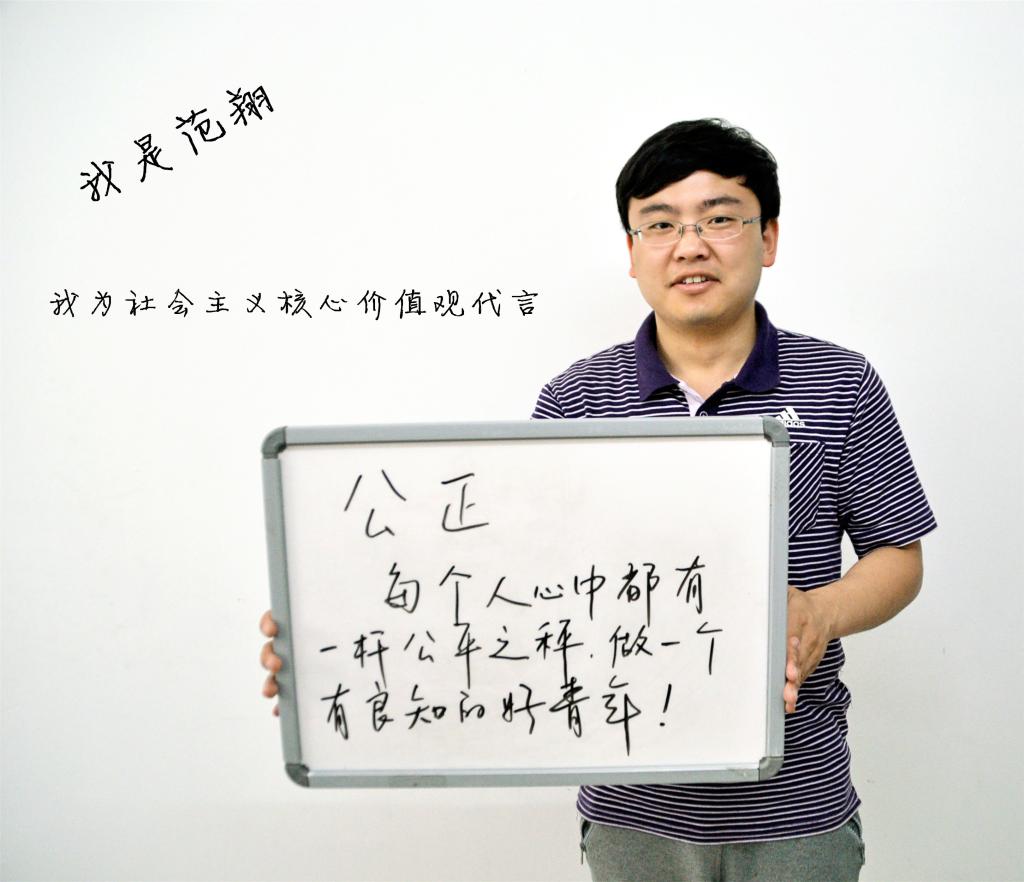 我是范翔
我为社会主义核心价值观代言
adidas
公正
每个人心中都有
一杆公平之秤.做一个
有良知的好青年!